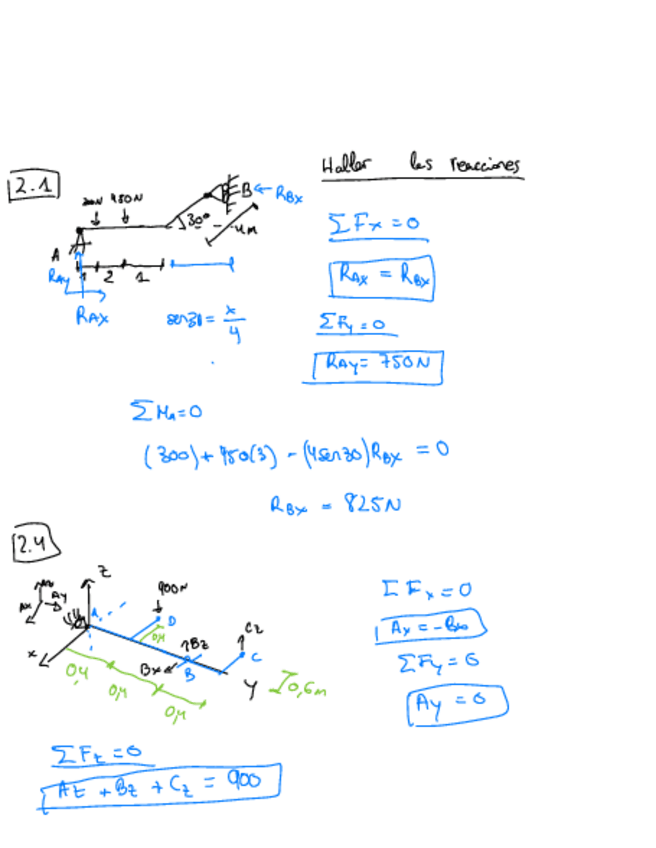 Hallar las reacciones
2.1
450N
B ← RBX
30º
4m
A
RAy
1 2 1
RAX
sen30 = x/4
ΣFx = 0
RAX = RBX
ΣFy = 0
RAy = 750N
ΣMA = 0
(300) + 450(3) - (4sen30)RBX = 0
RBX = 825N
2.4
Z
Az
Ay
Ax
A
900N
D
0,4
Cz
C
Bz
Bx
B
x
Y
0,4
0,4
0,4
0,6m
ΣFx = 0
Ax = -Bx
ΣFy = 0
Ay = 0
ΣFz = 0
Az + Bz + Cz = 900